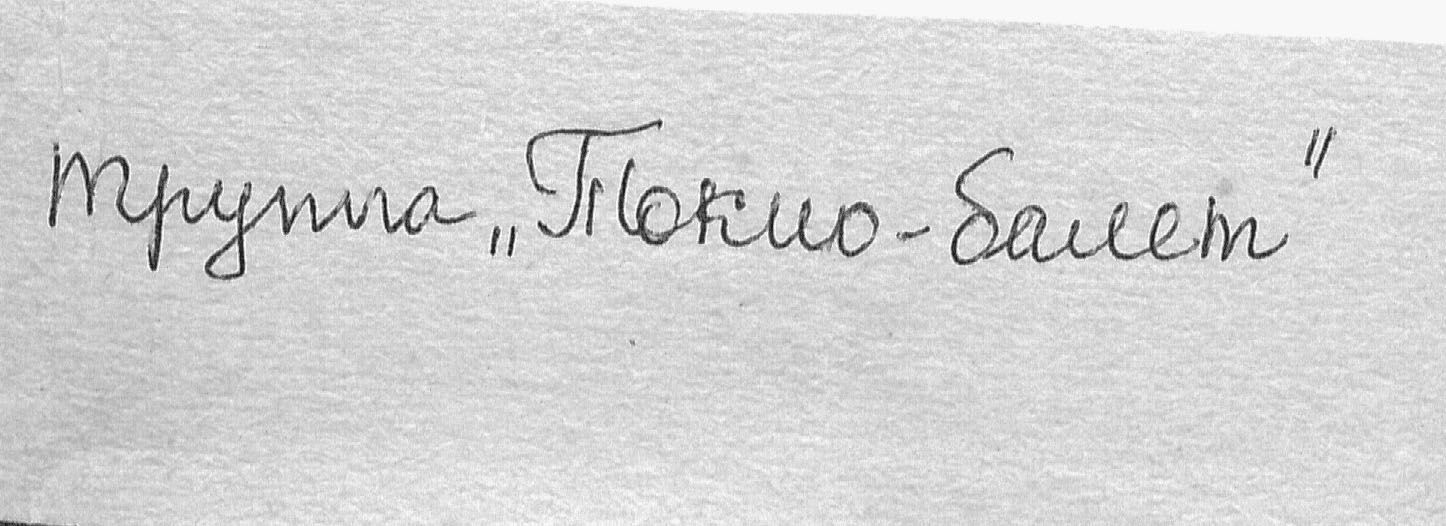 труппа „Токио-балет"